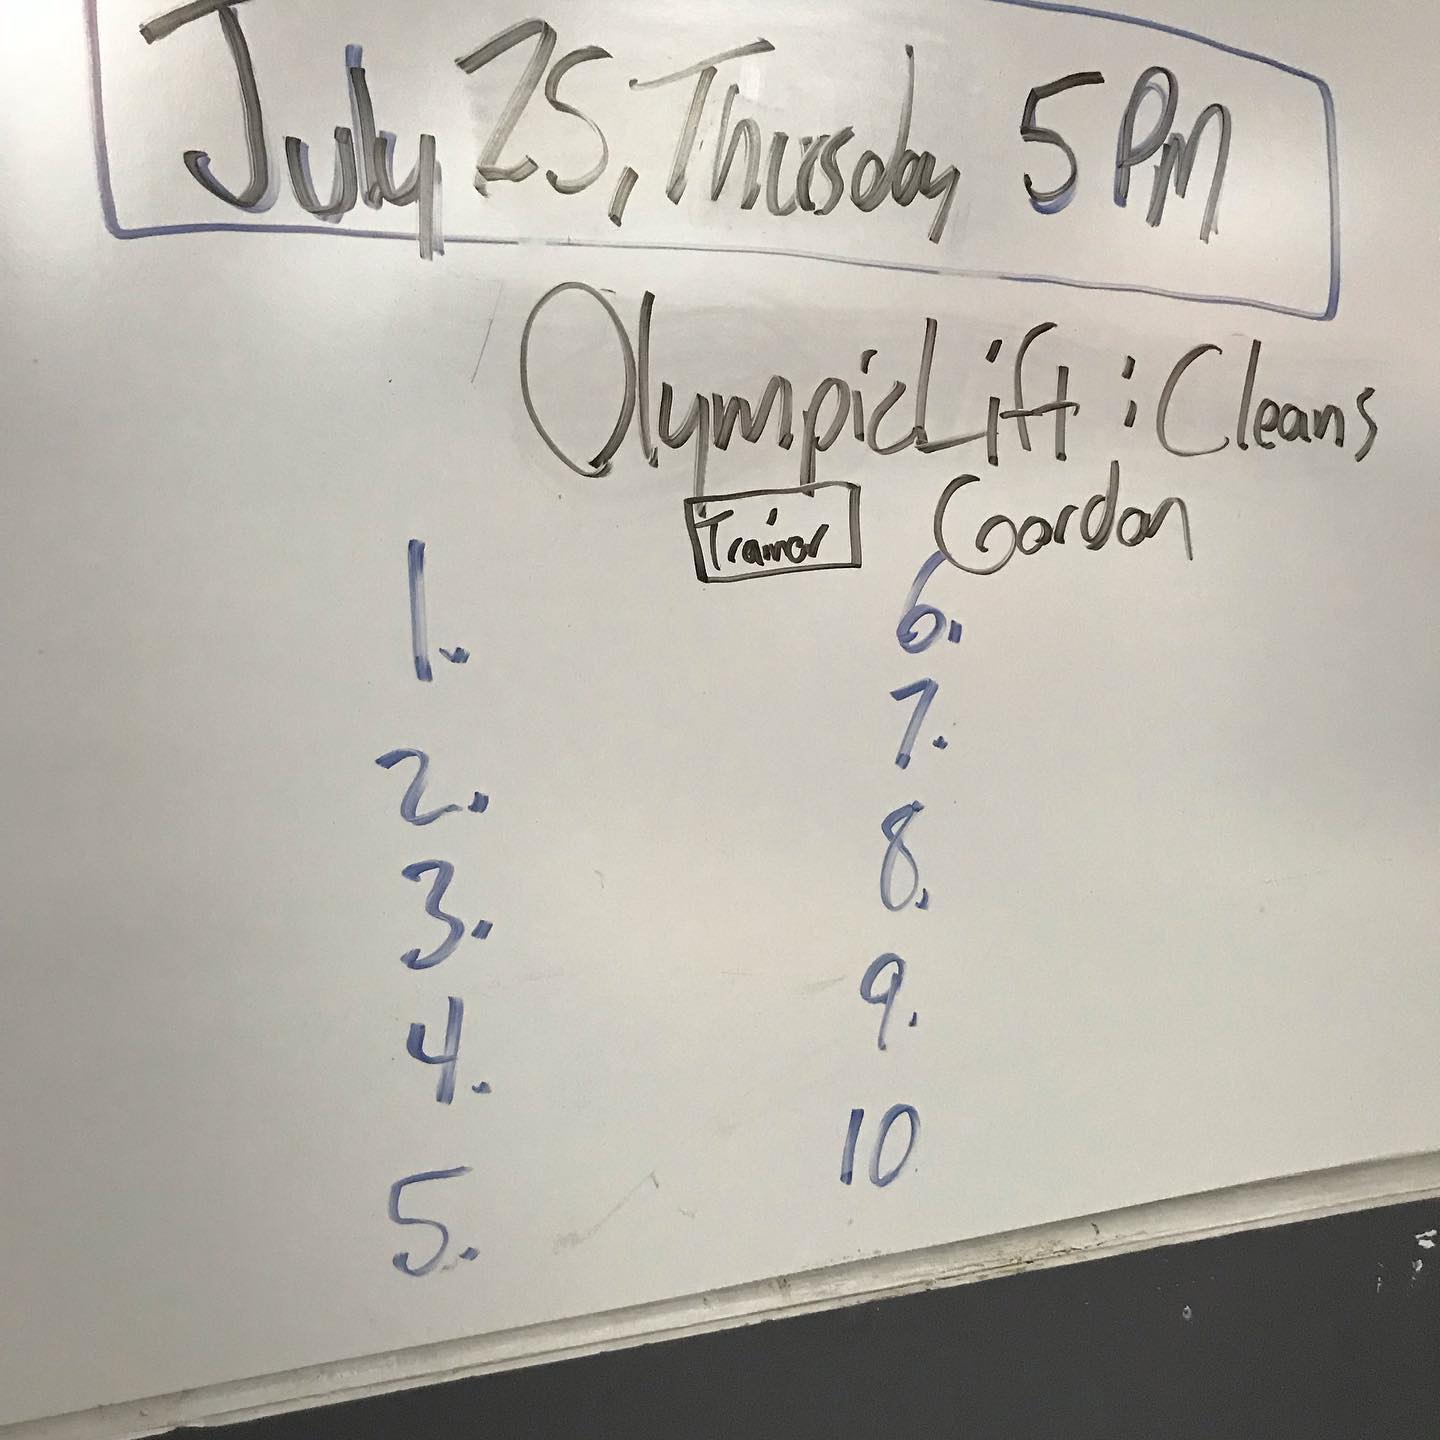 July 25, Thursday 5 PM
Olympic Lift : Cleans
Trainor Gordon
1.
2.
3.
4.
5.
6.
7.
8.
9.
10